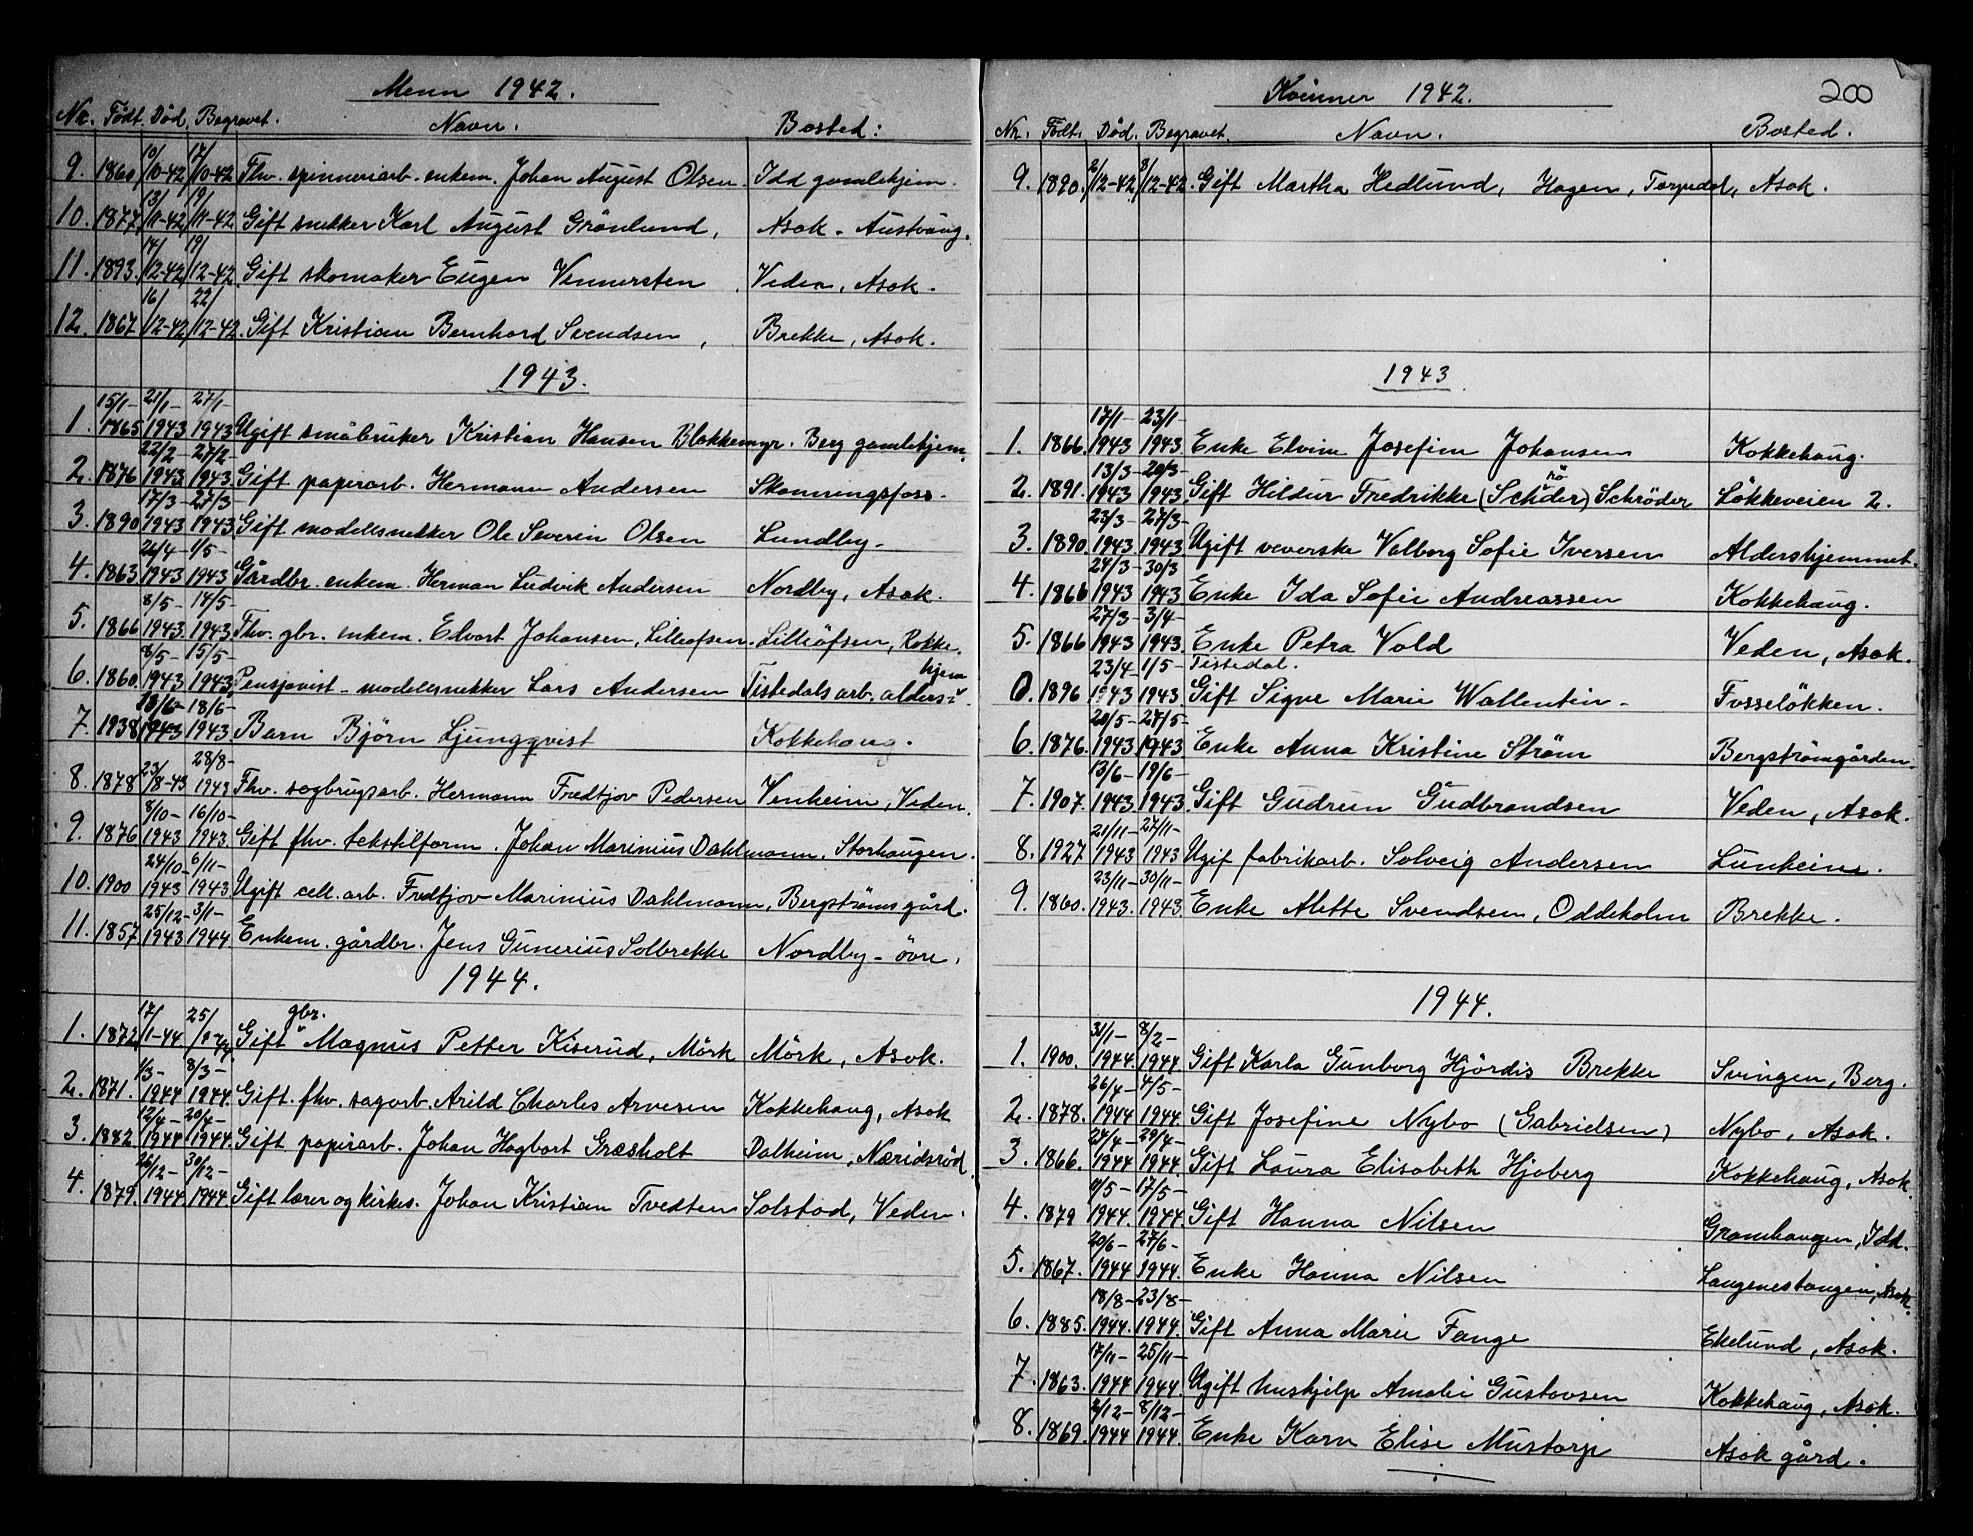 Menn 1942.
Nr. Født. Død. Begravet. Navn. Bosted:
9. 1860 10/10-42 17/10-42 Fhv. spinneriarb. enkem. Johan August Olsen. Idd gamlehjem.
10. 1877. 13/11-42 19/11-42 Gift snekker Karl August Grönlund, Asak. Austvang.
11. 1893. 14/12-42 19/12-42 Gift skomaker Eugen Vennersten, Veden, Asak.
12. 1867. 16/12-42 22/12-42. Gift Kristian Bernhard Svendsen, Brekke, Asak.
1943.
1. 15/1-1865 21/1-1943 27/1 1943 Ugift småbruker Kristian Hansen Blakkemyr. Berg gamlehjem.
2. 1876 22/2-1943 27/2-1943. Gift papirarb. Hermann Andersen Skonningsfoss.
3. 1890 17/3-1943 27/3-1943 Gift modellsnekker Ole Severin Olsen Lundby.
4. 1863 26/4-1943 1/5-1943 Gårdbr. enkem. Herman Ludvik Andersen Nordby, Asak.
5. 1866 8/5-1943. 14/5-1943. Fhv. gbr. enkem. Elvart Johansen, Lilleøfsen. Lilleöfsen, Rokke.
6. 1860. 8/5-1943 15/5-1943. Pensjonist - modellsnekker Lars Andersen Tistedals arb. alders- hjem
7. 1938 13/6-1943 18/6-1943. Barn Björn Ljungqvist Kokkehaug.
8. 1878 23/8-43 28/8-1943 Fhv. sagbrugsarb. Hermann Fredtjov Pedersen Venheim, Veden.
9. 1876 8/10-1943 16/10-1943. Gift fhv. tekstilform. Johan Marinius Dahlmann. Storhaugen.
10. 1900 24/10-1943 6/11-1943 Ugift cell. arb. Fredtjov Marinius Dahlmann, Bergströms gård.
11. 1857 25/12-1943 3/1-1944 Enkem. gårdbr. Jens Gunerius Solbrekke Nordby - övre.
1944.
1. 1872 17/1-44 25/1-44 Gift gbr. Magnus Petter Kiserud, Mörk Mörk, Asak.
2. 1871. 1/3-1944 8/3-1944. Gift. fhv. sagarb. Arild Charles Arvesen Kokkehaug, Asak
3. 1882 12/4-1944 20/4-1944. Gift papirarb. Johan Hagbart Græsholt Dalheim, Næridsröd.
4. 1879. 26/12-1944 30/12-1944. Gift lærer og kirkes. Johan Kristian Tvedten Solstad, Veden.
200
Kvinner 1942.
Nr. Født. Død. Begravet. Navn. Bosted.
9. 1890. 2/12-42. 8/12-42. Gift Martha Hedlund, Hagen, Torpedal, Asak.
1943
1. 1866. 17/1-1943 23/1-1943 Enke Elvine Josefine Johansen Kokkehaug.
2. 1891. 13/3-1943 20/3-1943. Gift Hildur Fredrikke (Schöder) rö Schröder Lökkeveien 2.
3. 1890. 23/3-1943 27/3-1943 Ugift veverske Valborg Sofie Iversen Aldershjemmet.
4. 1866 24/3-1943 30/3 1943 Enke Ida Sofie Andreassen Kokkehaug.
5. 1866 27/3-1943 3/4-1943. Enke Petra Vold Veden, Asak.
0. 1896 23/4-1943 1/5-1943 Tistedal. Gift Signe Marie Wallentin - Fosselökken.
6. 1876. 20/5-1943 27/5-1943. Enke Anna Kristine Ström Bergströmgården.
7. 1907. 13/6-1943 19/6-1943. Gift Gudrun Gudbrandsen Veden, Asak.
8. 1927 21/11-1943 27/11-1943 Ugif fabrikarb. Solveig Andersen Lunheim.
9. 1860. 23/11-1943. 30/11-1943 Enke Alette Svendsen, Oddeholm Brekke.
1944.
1. 1900. 31/1-1944. 8/2-1944. Gift Karla Gunborg Hjördis Brekke Svingen, Berg.
2. 1878. 26/4-1944 4/5-1944. Gift Josefine Nybo (Gabrielsen) Nybo, Asak.
3. 1866. 24/4-1944 29/4-1944. Gift Laura Elisabeth Hjoberg Kokkehaug, Asak.
4. 1879 11/5-1944. 17/5-1944. Gift Hanna Nilsen Granehaugen, Idd.
5. 1867. 20/6-1944 27/6-1944. Enke Hanna Nilsen Langenestangen, Asak.
6. 1885. 18/8-1944. 23/8-1944. Gift Anna Marie Fange Ekelund, Asak.
7. 1863. 17/11-1944 25/11-1944 Ugift hushjelp Amalie Gustavsen Kokkehaug, Asak.
8. 1869. 2/12-1944 8/12-1944. Enke Karn Elise Mustorp Asak gård.